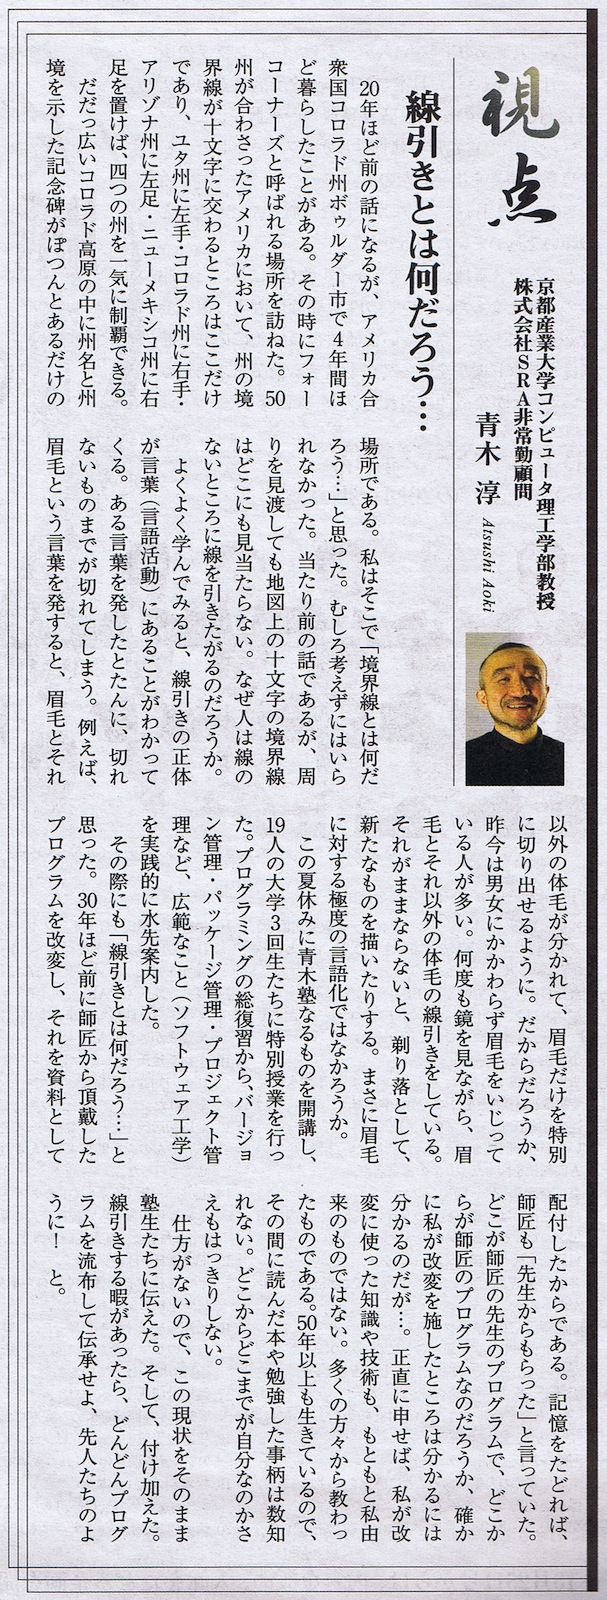 視点
京都産業大学コンピュータ理工学部教授
株式会社SRA非常勤顧問
青木 淳 Atsushi Aoki
線引きとは何だろう…
20年ほど前の話になるが、アメリカ合
衆国コロラド州ボゥルダー市で4年間ほ
ど暮らしたことがある。その時にフォー
コーナーズと呼ばれる場所を訪ねた。50
州が合わさったアメリカにおいて、州の境
界線が十文字に交わるところはここだけ
であり、ユタ州に左手・コロラド州に右手・
アリゾナ州に左足・ニューメキシコ州に右
足を置けば、四つの州を一気に制覇できる。
だだっ広いコロラド高原の中に州名と州
境を示した記念碑がぽつんとあるだけの
場所である。私はそこで「境界線とは何だ
ろう…」と思った。むしろ考えずにはいら
れなかった。当たり前の話であるが、周
りを見渡しても地図上の十文字の境界線
はどこにも見当たらない。なぜ人は線の
ないところに線を引きたがるのだろうか。
よくよく学んでみると、線引きの正体
が言葉(言語活動)にあることがわかって
くる。ある言葉を発したとたんに、切れ
ないものまでが切れてしまう。例えば、
眉毛という言葉を発すると、眉毛とそれ
以外の体毛が分かれて、眉毛だけを特別
に切り出せるように。だからだろうか、
昨今は男女にかかわらず眉毛をいじって
いる人が多い。何度も鏡を見ながら、眉
毛とそれ以外の体毛の線引きをしている。
それがままならないと、剃り落として、
新たなものを描いたりする。まさに眉毛
に対する極度の言語化ではなかろうか。
この夏休みに青木塾なるものを開講し、
19人の大学3回生たちに特別授業を行っ
た。プログラミングの総復習から、バージョ
ン管理・パッケージ管理・プロジェクト管
理など、広範なこと(ソフトウェア工学)
を実践的に水先案内した。
その際にも「線引きとは何だろう…」と
思った。30年ほど前に師匠から頂戴した
プログラムを改変し、それを資料として
配付したからである。記憶をたどれば、
師匠も「先生からもらった」と言っていた。
どこが師匠の先生のプログラムで、どこか
らが師匠のプログラムなのだろうか、確か
に私が改変を施したところは分かるには
分かるのだが…。正直に申せば、私が改
変に使った知識や技術も、もともと私由
来のものではない。多くの方々から教わっ
たものである。50年以上も生きているので、
その間に読んだ本や勉強した事柄は数知
れない。どこからどこまでが自分なのかさ
えもはっきりしない。
仕方がないので、この現状をそのまま
塾生たちに伝えた。そして、付け加えた。
線引きする暇があったら、どんどんプログ
ラムを流布して伝承せよ、先人たちのよ
うに! と。